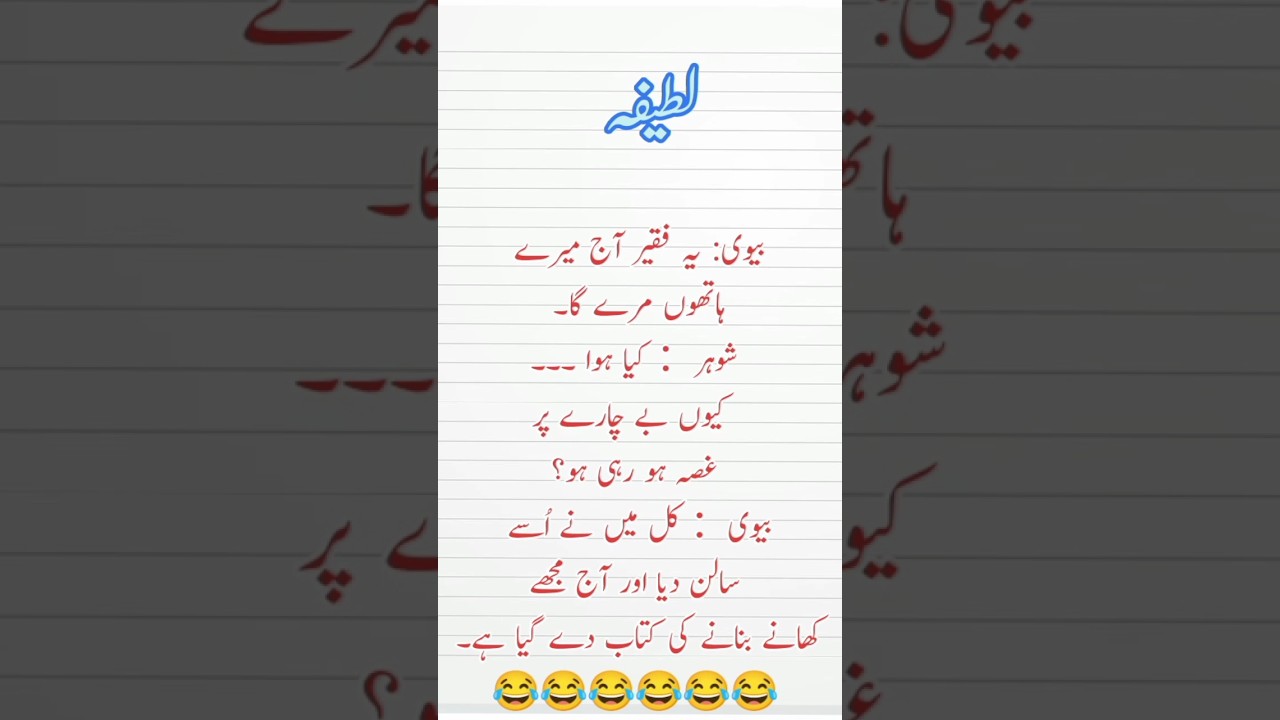 لطیفہ
بیوی: یہ فقیر آج میرے
ہاتھوں مرے گا۔
شوہر : کیا ہوا ۔۔۔
کیوں بے چارے پر
غصہ ہو رہی ہو؟
بیوی : کل میں نے اُسے
سالن دیا اور آج مجھے
کھانے بنانے کی کتاب دے گیا ہے۔
😂😂😂😂😂😂